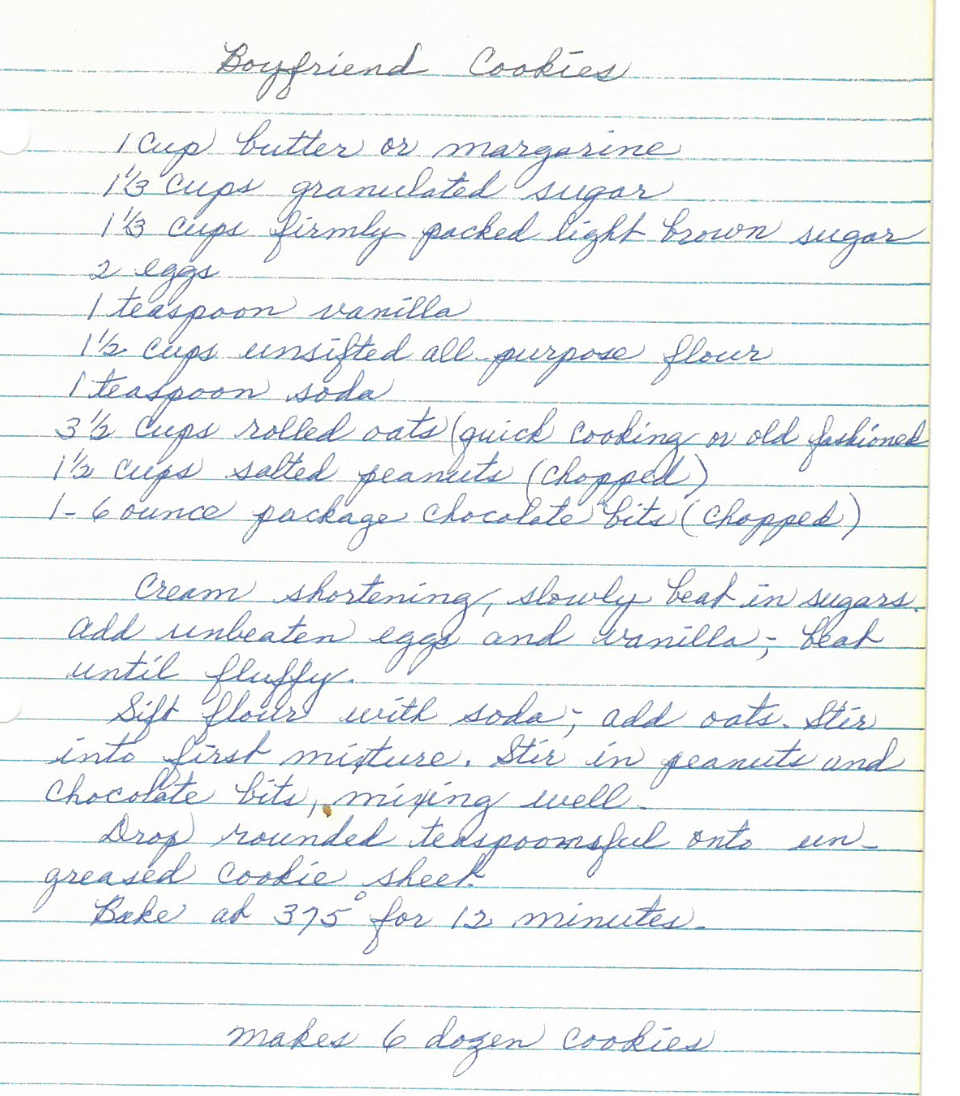 Boyfriend Cookies
1 Cup butter or margarine
1 1/3 Cups granulated sugar
1 1/3 cups firmly packed light brown sugar
2 eggs
1 teaspoon vanilla
1 1/2 cups unsifted all purpose flour
1 teaspoon soda
3 1/2 cups rolled oats (quick cooking or old fashioned
1 1/2 cups salted peanuts (chopped)
1 - 6 ounce package chocolate bits (chopped)
Cream shortening, slowly beat in sugars.
add unbeaten eggs and vanilla; beat
until fluffy.
Sift flour with soda; add oats. Stir
into first mixture. Stir in peanuts and
chocolate bits, mixing well.
Drop rounded teaspoonsful onto un-
greased cookie sheet.
Bake at 375° for 12 minutes.
makes 6 dozen cookies